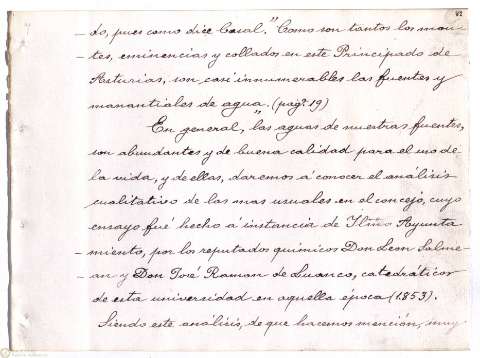 42
do, pues como dice Casal. "Como son tantos los mon-
tes, eminencias y collados en este Principado de
Asturias, son casi innumerables las fuentes y
manantiales de agua." (pagª 19)
En general, las aguas de nuestras fuentes,
son abundantes y de buena calidad para el uso de
la vida, y de ellas, daremos á conocer el análisis
cualitativo de las mas usuales en el concejo, cuyo
ensayo fué hecho á instancia de Iltmo Ayunta-
miento, por los reputados quimicos Don Leon Salme-
an y Don José Ramon de Luanco, catedráticos
de esta universidad en aquella época (1853).
Siendo este análisis, de que hacemos mención, muy